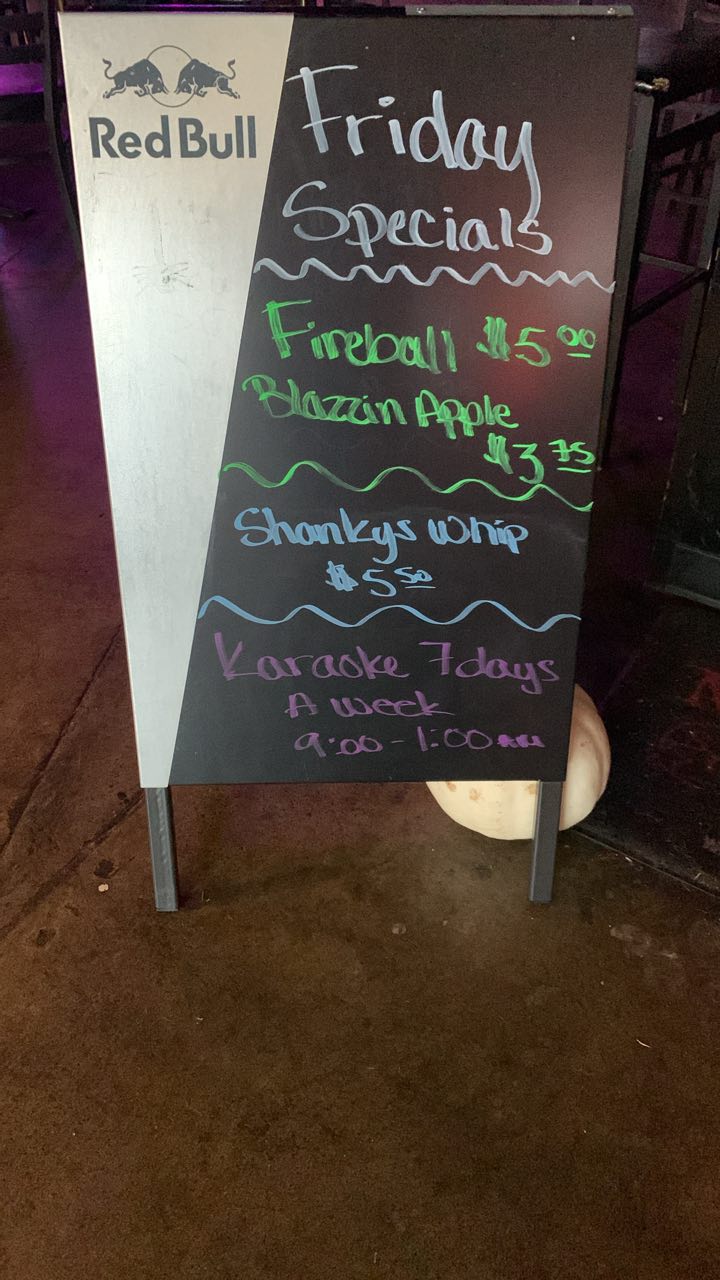 Red Bull
Friday
Specials
Fireball $5.00
Blazzin Apple
$3.75
Shankys Whip
$5.50
Karaoke 7days
A week
9:00-1:00am